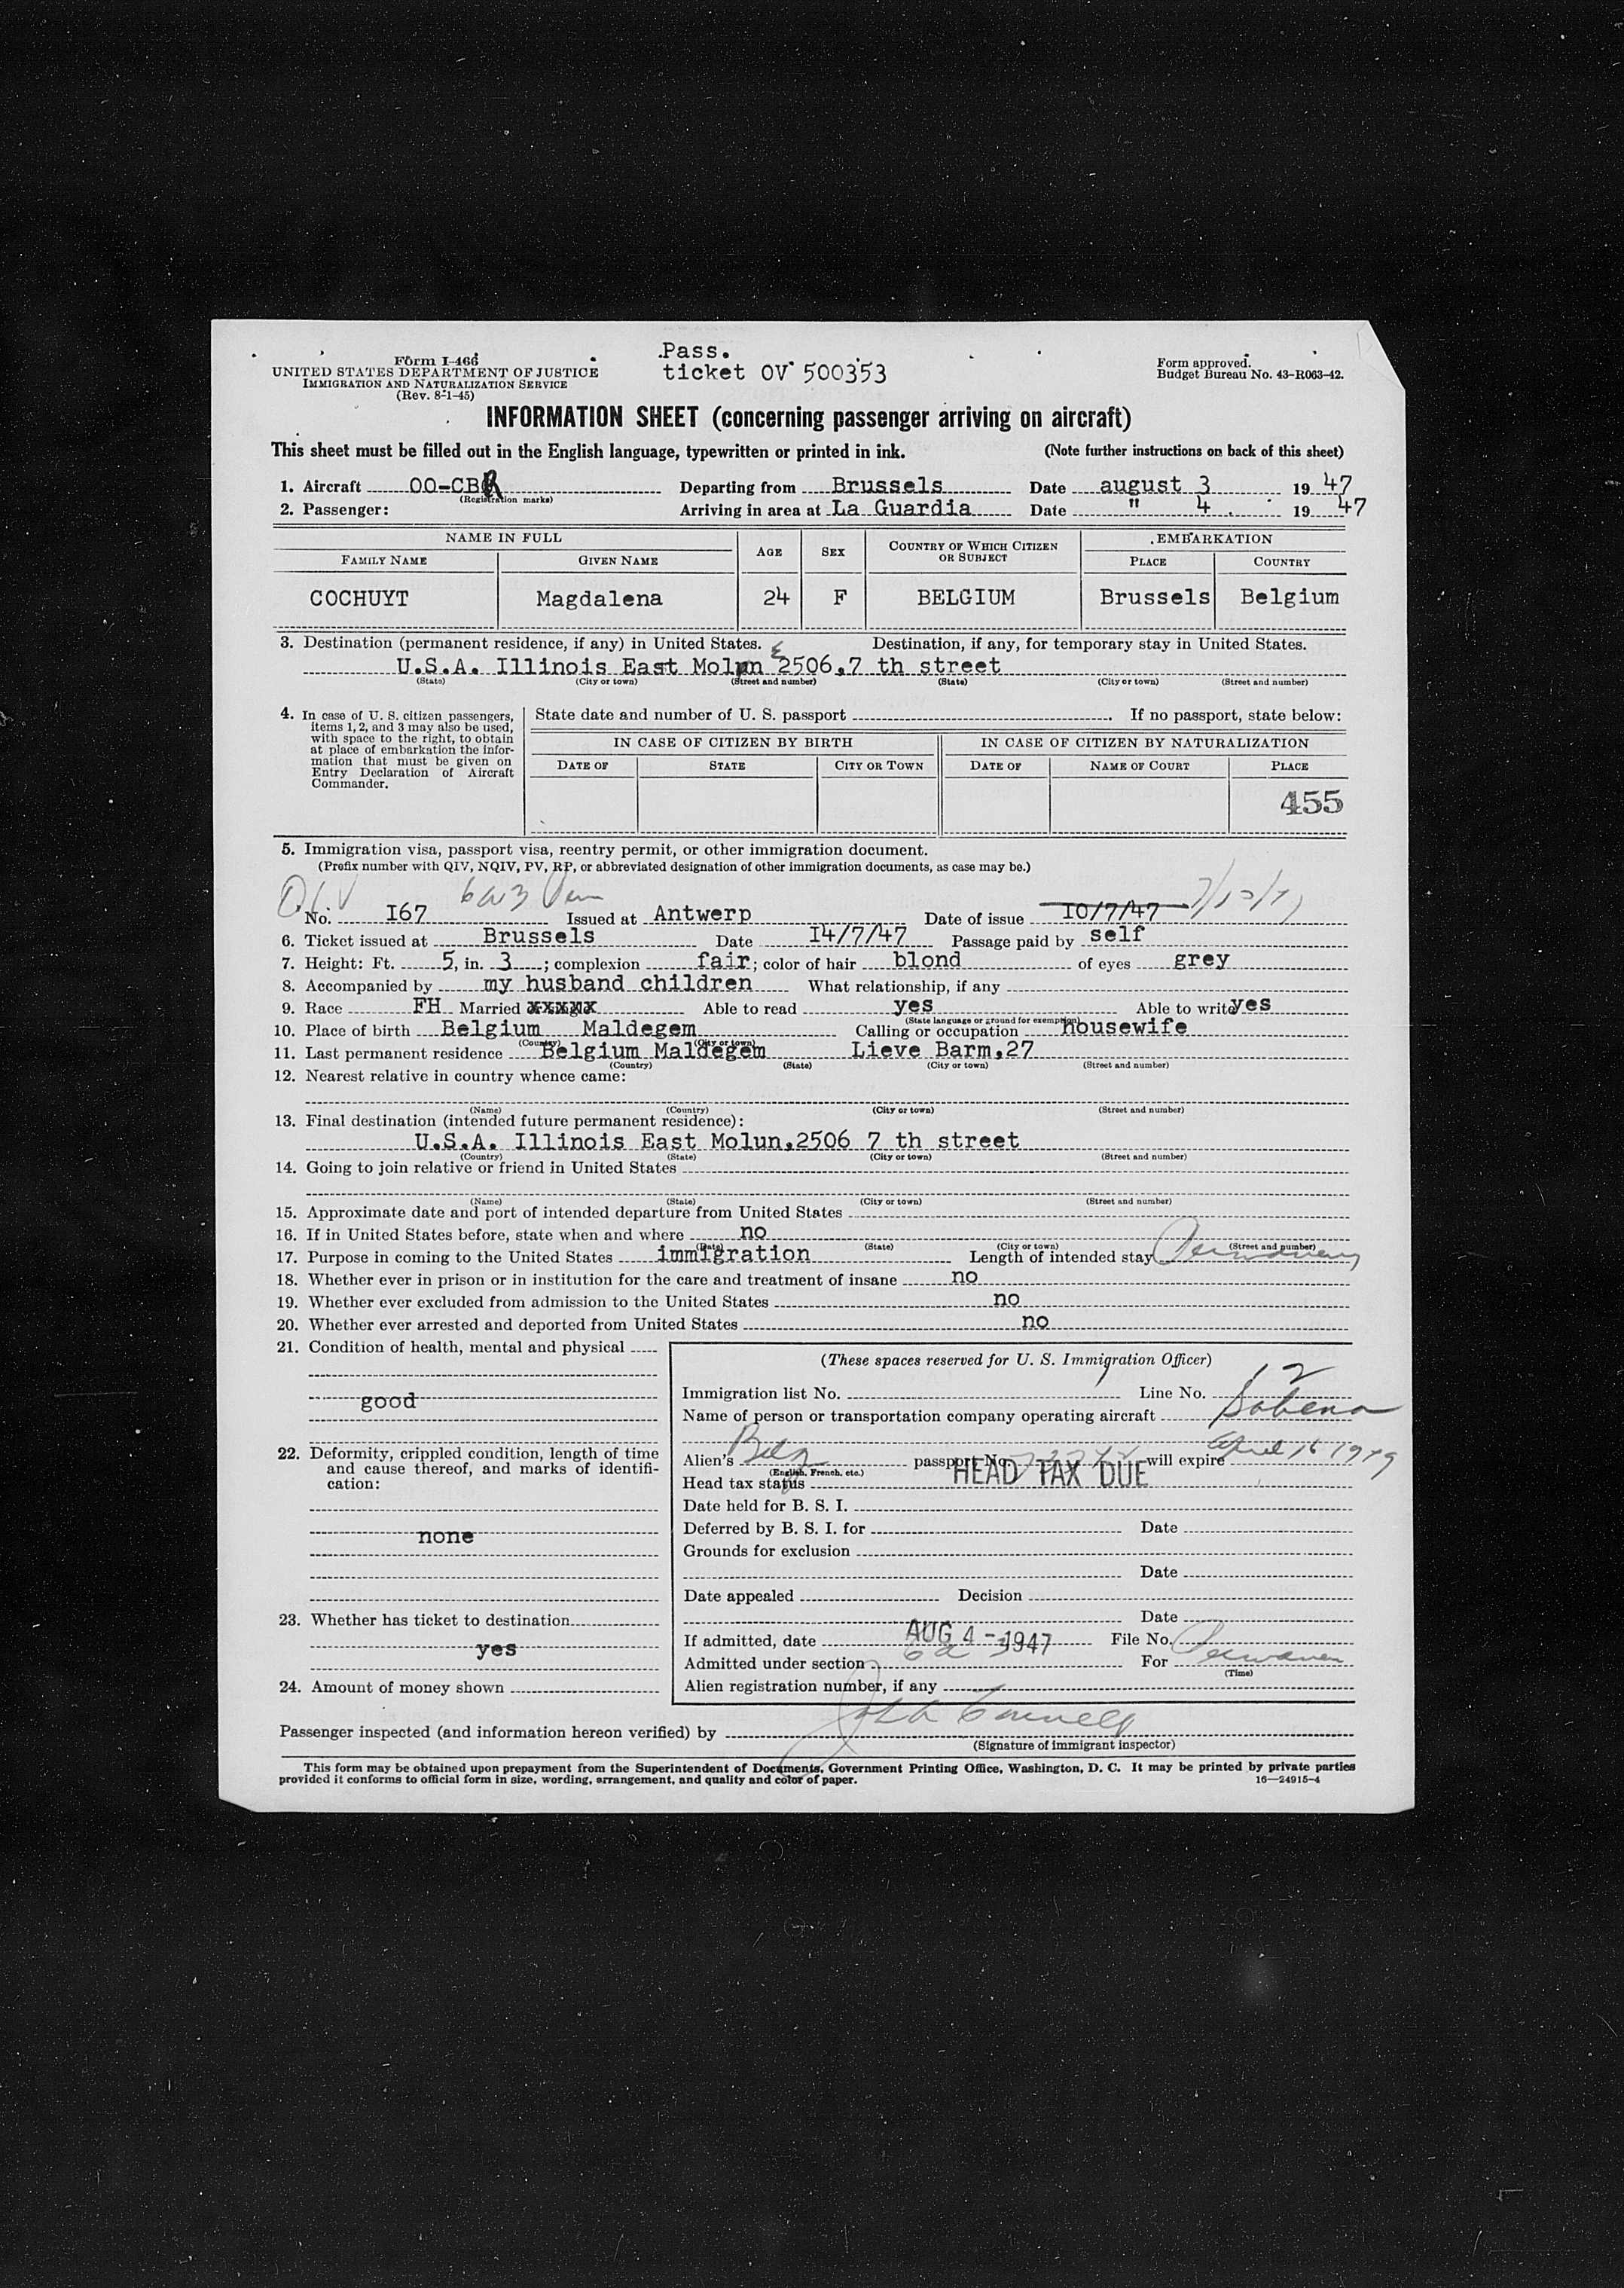 Form I-466
UNITED STATES DEPARTMENT OF JUSTICE
IMMIGRATION AND NATURALIZATION SERVICE
(Rev. 8-1-45)
Pass.
ticket OV 500353
Form approved.
Budget Bureau No. 43-R063-42.
INFORMATION SHEET (concerning passenger arriving on aircraft)
This sheet must be filled out in the English language, typewritten or printed in ink. (Note further instructions on back of this sheet)
1. Aircraft OO-CBR Departing from Brussels Date august 3 1947
(Registration marks)
2. Passenger: Arriving in area at La Guardia Date " 4 . 1947
NAME IN FULL
FAMILY NAME GIVEN NAME AGE SEX COUNTRY OF WHICH CITIZEN OR SUBJECT EMBARKATION PLACE COUNTRY
COCHUYT Magdalena 24 F BELGIUM Brussels Belgium
3. Destination (permanent residence, if any) in United States. Destination, if any, for temporary stay in United States.
U.S.A. Illinois East Molun 2506,7 th street
(State) (City or town) (Street and number) (State) (City or town) (Street and number)
4. In case of U. S. citizen passengers, items 1, 2, and 3 may also be used, with space to the right, to obtain at place of embarkation the information that must be given on Entry Declaration of Aircraft Commander.
State date and number of U. S. passport If no passport, state below:
IN CASE OF CITIZEN BY BIRTH IN CASE OF CITIZEN BY NATURALIZATION
DATE OF STATE CITY OR TOWN DATE OF NAME OF COURT PLACE
455
5. Immigration visa, passport visa, reentry permit, or other immigration document.
(Prefix number with QIV, NQIV, PV, RP, or abbreviated designation of other immigration documents, as case may be.)
QIV 6a3
No. I67 Issued at Antwerp Date of issue 10/7/47
6. Ticket issued at Brussels Date I4/7/47 Passage paid by self
7. Height: Ft. 5, in. 3 ; complexion fair; color of hair blond of eyes grey
8. Accompanied by my husband children What relationship, if any
9. Race FH Married or single xxxxx Able to read yes Able to write yes
(State language or ground for exemption)
10. Place of birth Belgium Maldegem Calling or occupation housewife
(Country) (City or town)
11. Last permanent residence Belgium Maldegem Lieve Barm,27
(Country) (State) (City or town) (Street and number)
12. Nearest relative in country whence came:
(Name) (Country) (City or town) (Street and number)
13. Final destination (intended future permanent residence):
U.S.A. Illinois East Molun,2506 7 th street
(Country) (State) (City or town) (Street and number)
14. Going to join relative or friend in United States
(Name) (State) (City or town) (Street and number)
15. Approximate date and port of intended departure from United States
16. If in United States before, state when and where no
(Date) (State) (City or town) (Street and number)
17. Purpose in coming to the United States immigration Length of intended stay
18. Whether ever in prison or in institution for the care and treatment of insane no
19. Whether ever excluded from admission to the United States no
20. Whether ever arrested and deported from United States no
21. Condition of health, mental and physical
good
22. Deformity, crippled condition, length of time and cause thereof, and marks of identification:
none
23. Whether has ticket to destination
yes
24. Amount of money shown
(These spaces reserved for U. S. Immigration Officer)
Immigration list No. Line No. 12
Name of person or transportation company operating aircraft Sabena
Alien's Belg passport No. will expire April 16 1949
(English, French, etc.)
Head tax status HEAD TAX DUE
Date held for B. S. I.
Deferred by B. S. I. for Date
Grounds for exclusion
Date
Date appealed Decision
Date
If admitted, date AUG 4 - 1947 File No.
Admitted under section 6a3 For
(Time)
Alien registration number, if any
Passenger inspected (and information hereon verified) by
(Signature of immigrant inspector)
This form may be obtained upon prepayment from the Superintendent of Documents, Government Printing Office, Washington, D. C. It may be printed by private parties
provided it conforms to official form in size, wording, arrangement, and quality and color of paper. 16—24915-4